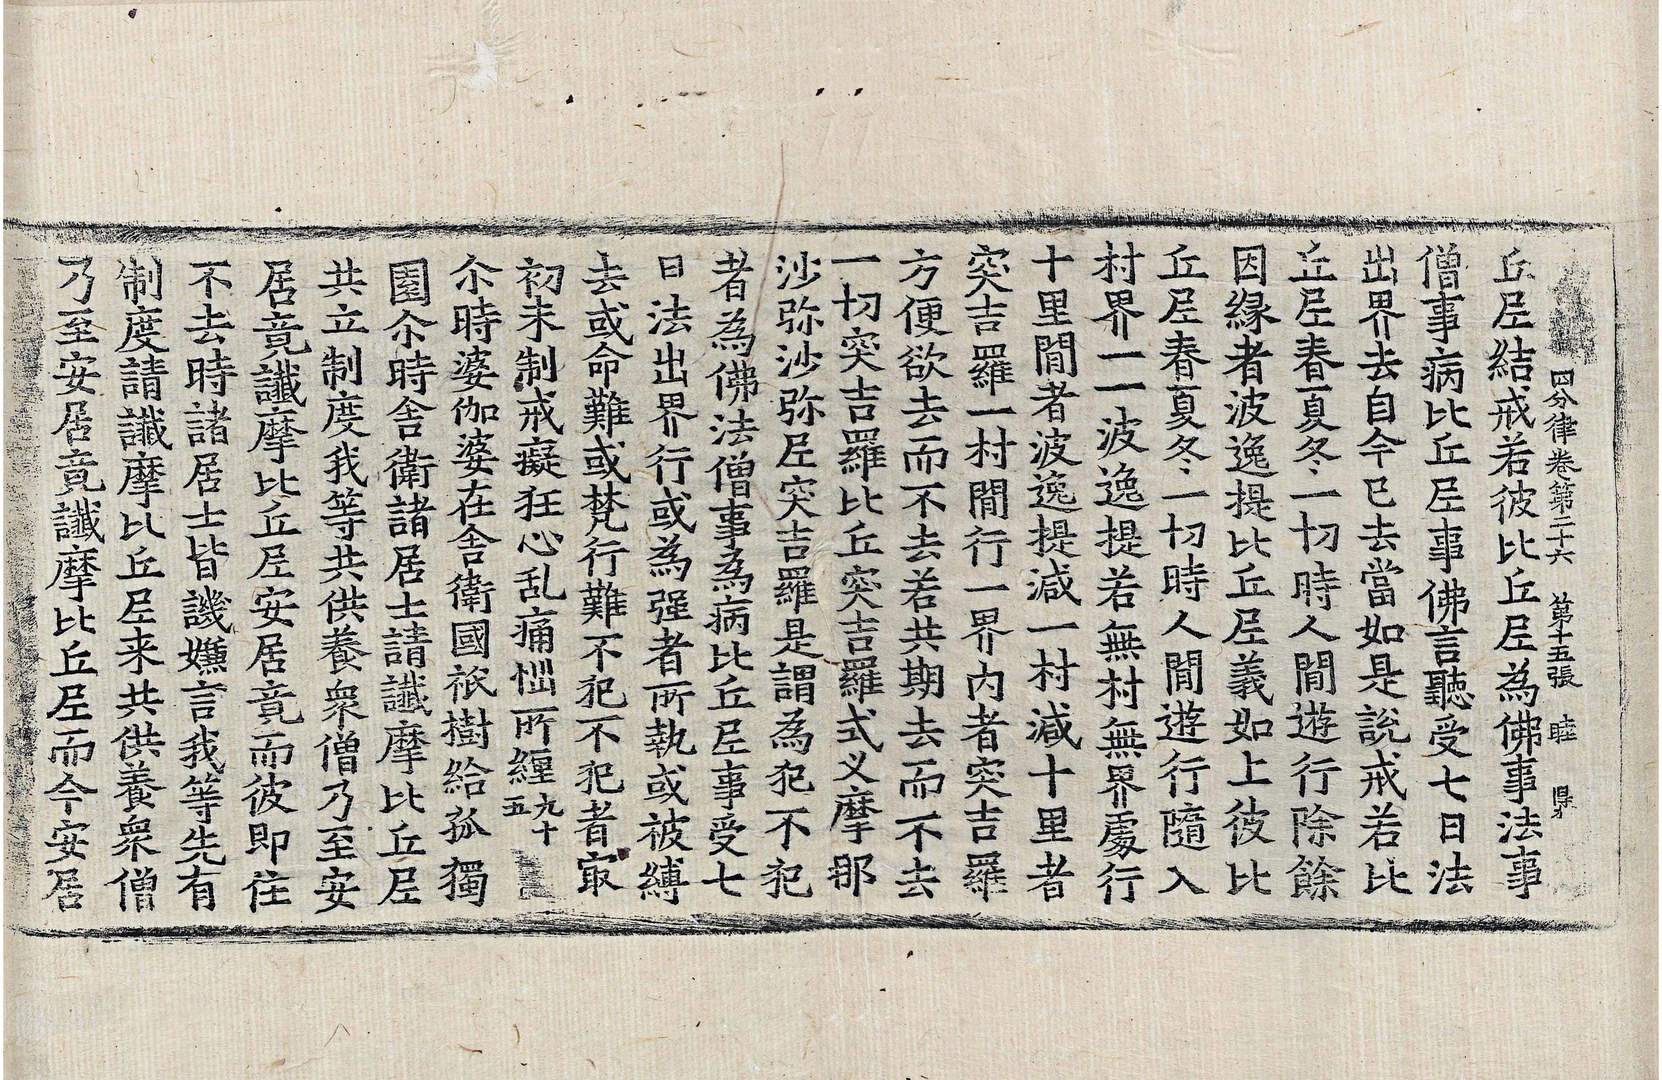 四分律卷第二十六 第十五張 睦
丘尼結戒若彼比丘尼為佛事法事
僧事病比丘尼事佛言聽受七日法
出界去自今已去當如是說戒若比
丘尼春夏冬一切時人間遊行除餘
因緣者波逸提比丘尼義如上彼比
丘尼春夏冬一切時人間遊行隨入
村界一一波逸提若無村無界處行
十里間者波逸提減一村減十里者
突吉羅一村間行一界內者突吉羅
方便欲去而不去若共期去而不去
一切突吉羅比丘突吉羅式叉摩那
沙弥沙弥尼突吉羅是謂為犯不犯
者為佛法僧事為病比丘尼事受七
日法出界行或為强者所執或被縛
去或命難或梵行難不犯不犯者冣
初未制戒癡狂心乱痛惱所纏九十五
尒時婆伽婆在舍衛國祇樹給孤獨
園尒時舍衛諸居士請讖摩比丘尼
共立制度我等共供養眾僧乃至安
居竟讖摩比丘尼安居竟而彼即住
不去時諸居士皆譏嫌言我等先有
制度請讖摩比丘尼来共供養眾僧
乃至安居竟讖摩比丘尼而今安居